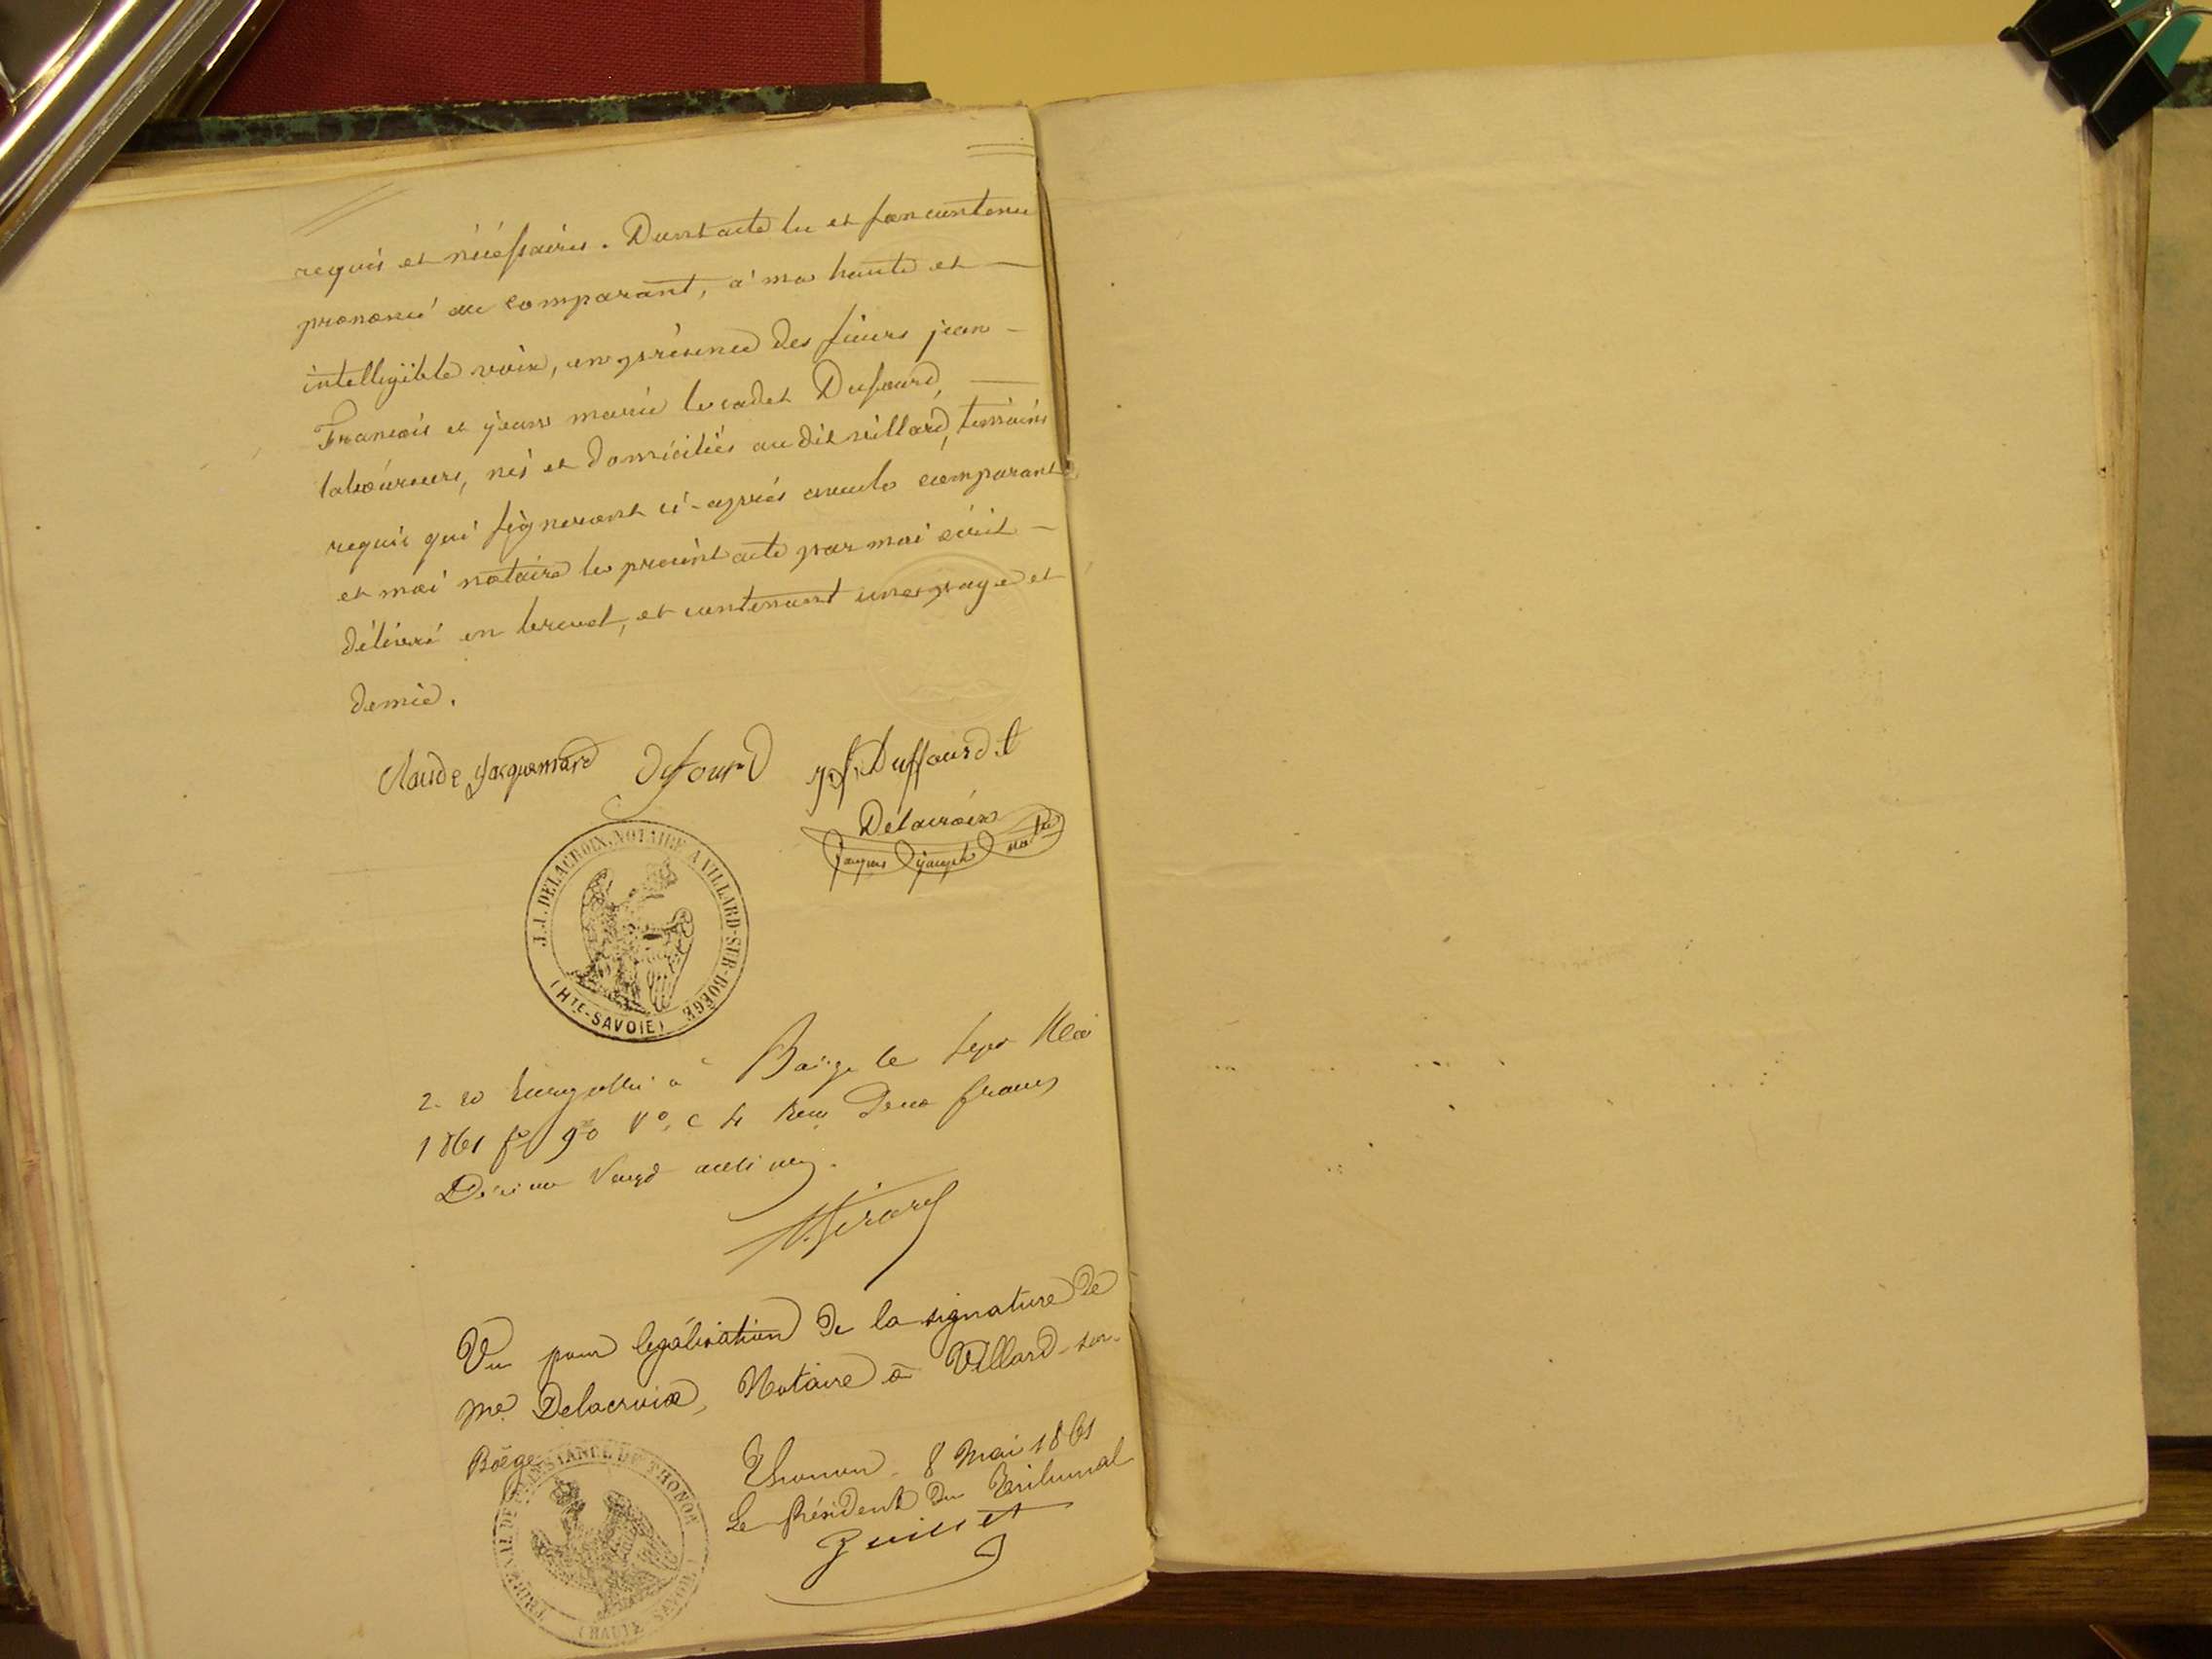 requis et nécessaires. Dont acte lu et son contenu
prononcé au comparant, à ma haute et —
intelligible voix, en présence des sieurs jean —
François et jean marie le cadet Dufourd, —
laboureurs, nés et domiciliés au dit villard, témoins
requis qui signeront ci-après avec le comparant
et moi notaire le présent acte par moi écrit —
délivré en brevet, et contenant une page et
demie.
Claude Jacquemard Dufourd Duffourd
Delacroix
jacques joseph not.re
J. J. DELACROIX, NOTAIRE A VILLARD-SUR-BOËGE
(HTE-SAVOIE)
2. 20 Enregistré à Boëge le sept Mai
1861 fo 90 Vo. c 4 Reçu Deux francs
Décime Vingt centimes.
Vu pour legalisation de la signature de
Me Delacroix, Notaire à Villard-sur-
Boëge
Thonon 8 Mai 1861
Le Président du Tribunal
TRIBUNAL DE 1RE INSTANCE DE THONON
(HAUTE SAVOIE)